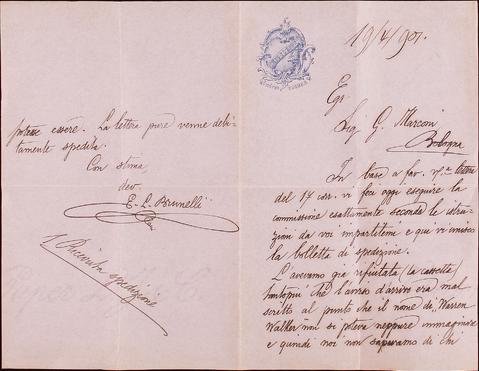 19/4/901.
Egr.
Sig. G. Marconi
Bologna
In base a fav. lettera
del 17 corr. vi feci oggi eseguire la
commissione esattamente secondo le istru-
zioni da voi impartitemi e qui vi unisco
la bolletta di spedizione.
L'avevamo già rifiutata (la cassetta)
tantopiù che l'avviso d'arrivo era mal
scritto al punto che il nome di Warren
Walker non si poteva neppure immaginare
e quindi noi non sapevamo di chi
potesse essere. La lettera pure venne debi-
tamente spedita.
Con stima,
dev.
E. L. Brunelli
1 Ricevuta spedizione